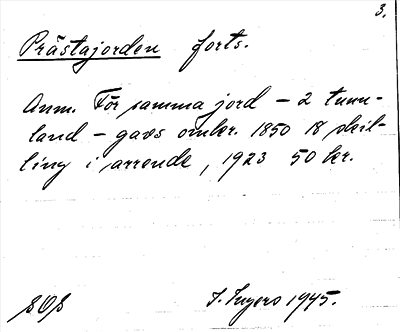 3.
Prästajorden forts.
Anm. För samma jord – 2 tunn-
land – gavs omkr. 1850 18 skil-
ling i arrende, 1923 50 kr.
J. Ingers 1945.